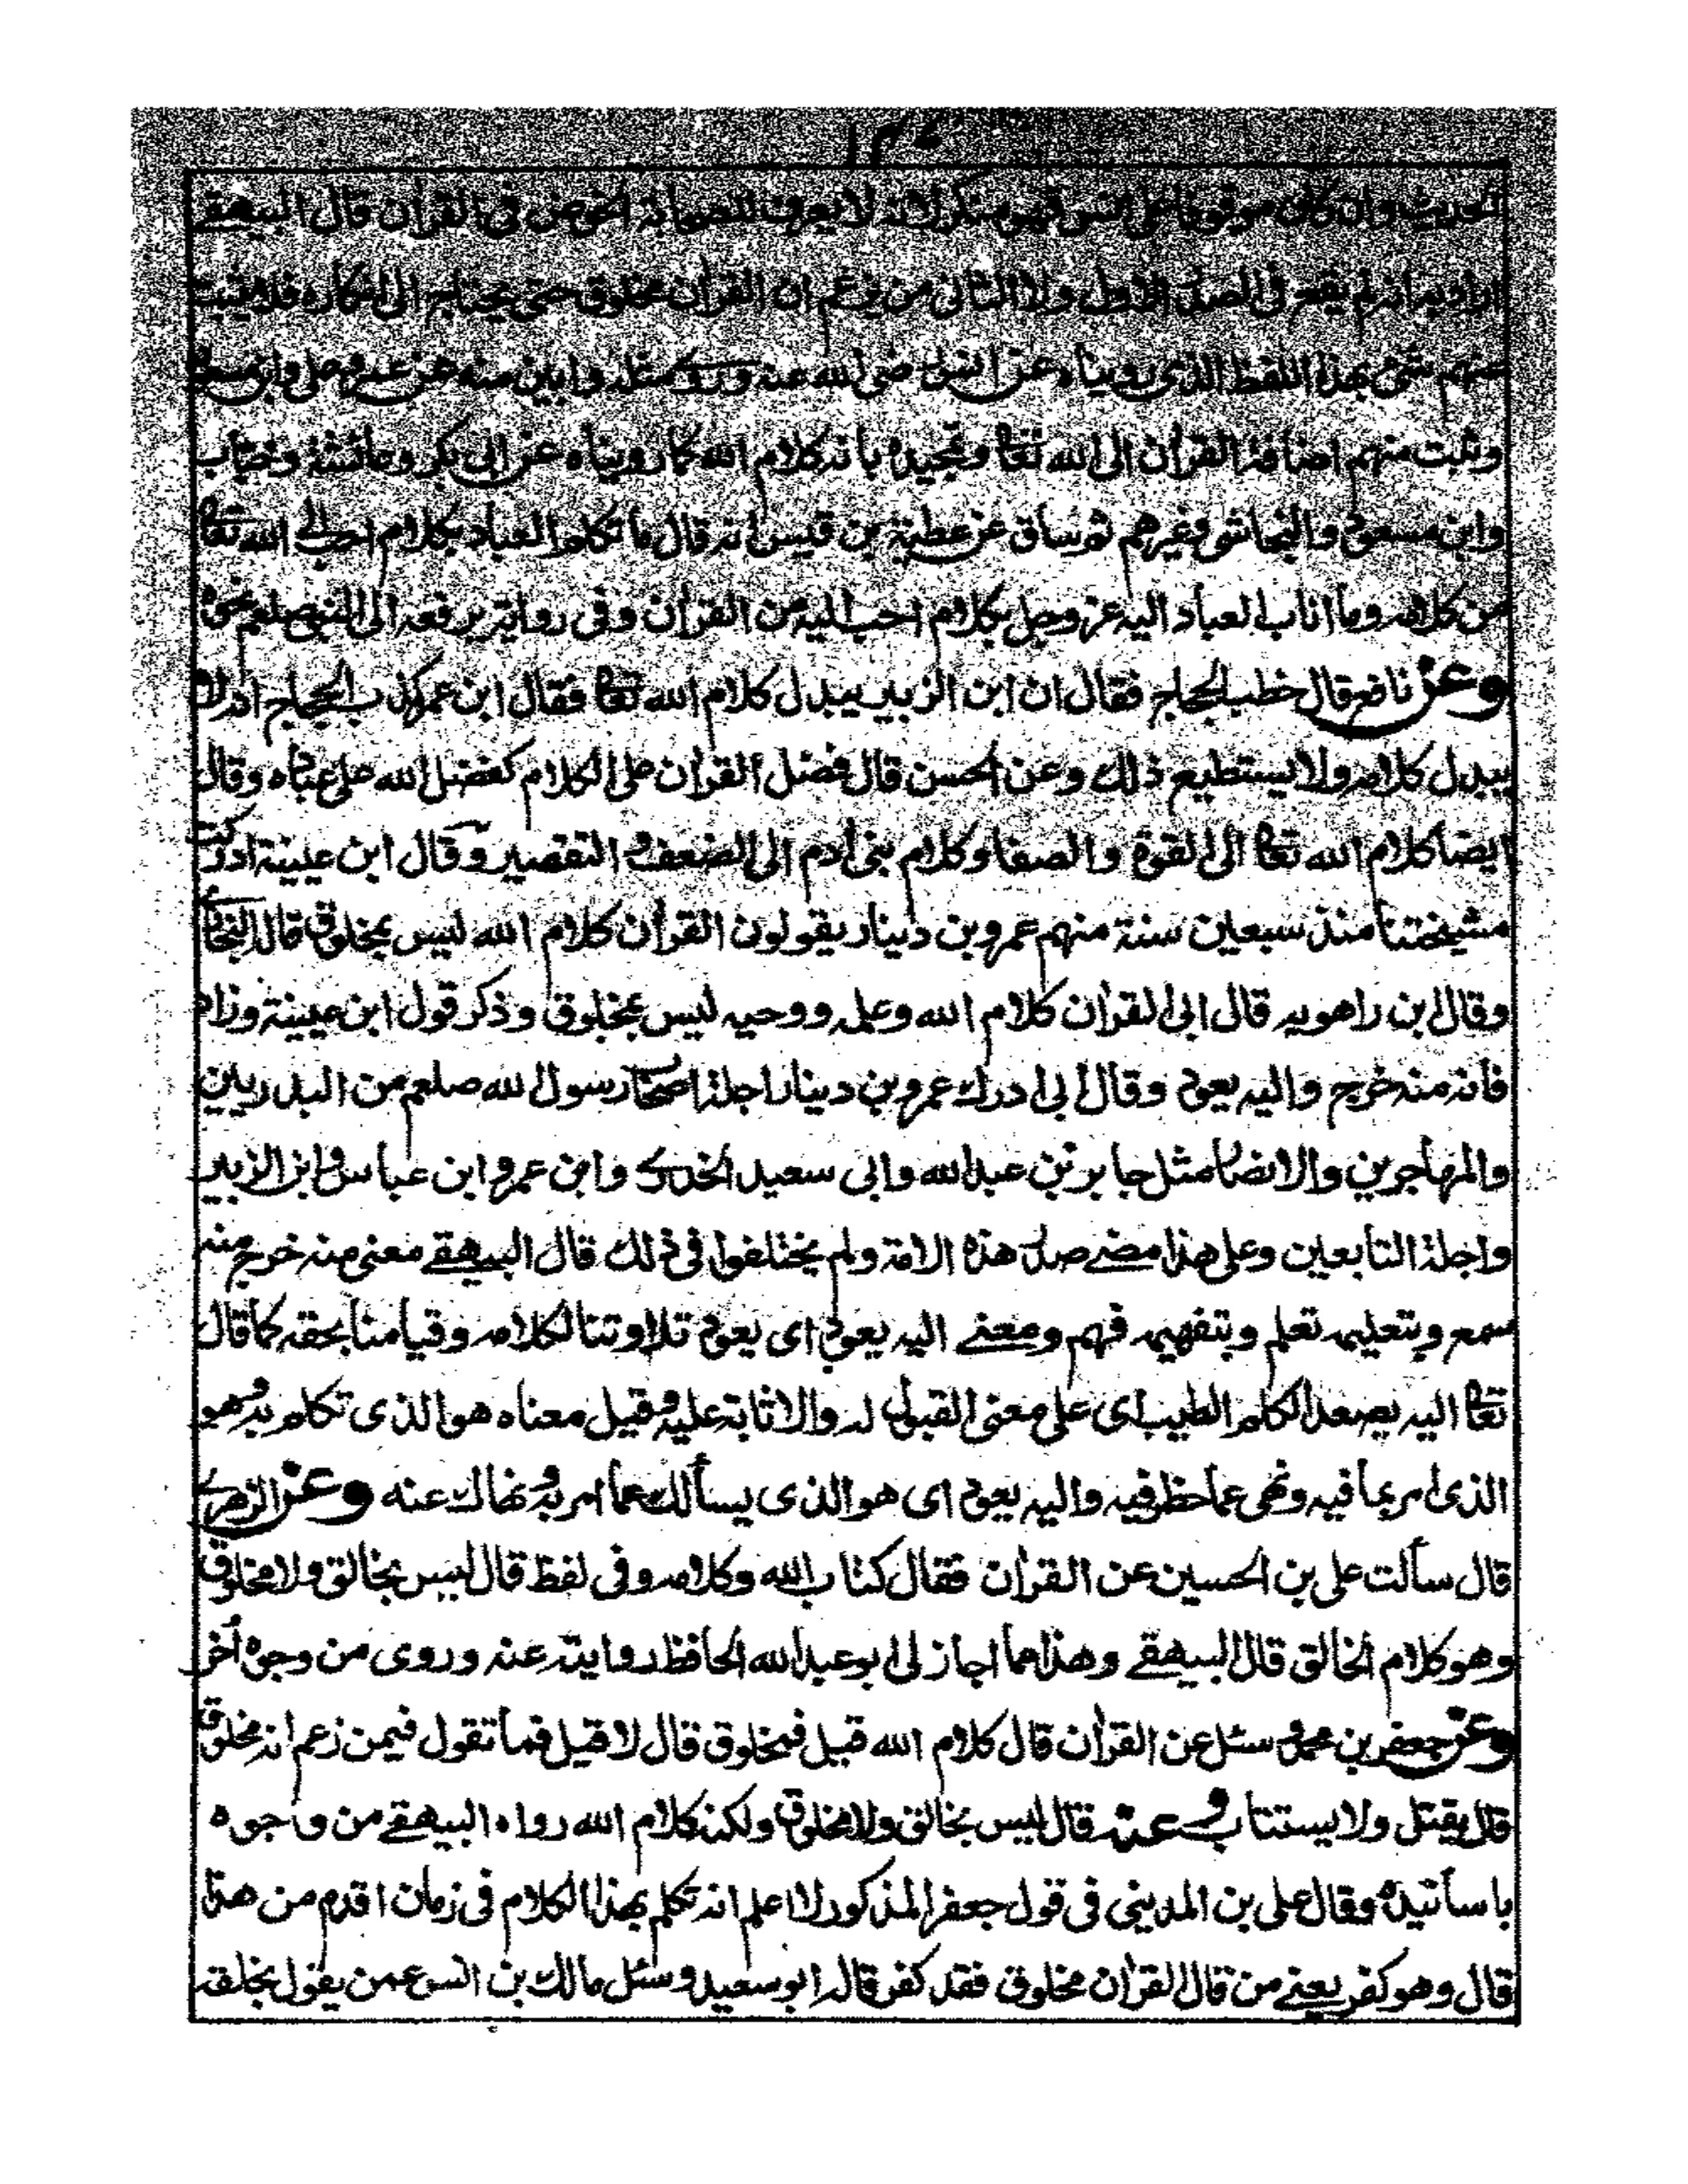 الحديث وان كان موقوفا على انس فهو منكر لانه لا يعرف للصحابة الخوض فى القرأن قال البيهقے
اراد به انه لم يقع فى الصدر الاول ولا الثانى من يزعم ان القرأن مخلوق حتى يحتاج الى انكاره فلا يثبت
عنهم شئ بهذا اللفظ الذى رويناه عن انس رضى الله عنه
وثبت منهم اضافة القرأن الى الله تعالى وتمجيده بانه كلام الله كما رويناه عن ابى بكر وعائشة وخباب
وابن مسعود والنجاشى وغيرهم ثم ساق عن عطية بن قيس انه قال ما تكلم العباد بكلام احب الى الله تعالى
من كلامه وما اناب العباد اليه عز وجل بكلام احب اليه من القرأن وفى رواية يرفعه الى النبى صلعم نحوه
وعن نافع قال خطب الحجاج فقال ان ابن الزبير يبدل كلام الله تعالى فقال ابن عمر كذب الحجاج
يبدل كلامه ولا يستطيع ذلك وعن الحسن قال فضل القرأن على الكلام كفضل الله على عباده وقال
ايضا كلام الله تعالى الى القوة والصفا وكلام بنى أدم الى الضعف والتقصير وقال ابن عيينة ادركت
مشيختنا منذ سبعين سنة منهم عمرو بن دينار يقولون القرأن كلام الله ليس بمخلوق قاله البخارى
وقال ابن راهويه قال ابى القرأن كلام الله وعلمه ووحيه ليس بمخلوق وذكر قول ابن عيينة وزاد
فانه منه خرج واليه يعود وقال ابى ادرك عمرو بن دينار اجلة اصحاب رسول الله صلعم من البدريين
والمهاجرين والانصار مثل جابر بن عبد الله وابى سعيد الخدرى وابن عمرو ابن عباس وابن الزبير
واجلة التابعين وعلى هذا مضے صدر هذه الامة ولم يختلفوا فى ذلك قال البيهقے معنى منه خرج منه
سمع وبتعليمه تعلم وبتفهيمه فهم ومعنے اليه يعود اى يعود تلاوتنا لكلامه وقيامنا بحقه كما قال
تعالى اليه يصعد الكلم الطيب اى على معنى القبول له والاثابة عليه وقيل معناه هو الذى تكلم به وهو
الذى امر بما فيه ونهى عما حظر فيه واليه يعود اى هو الذى يسألك عما امر به ونهاك عنه وعن الزهرى
قال سألت على بن الحسين عن القرأن فقال كتاب الله وكلامه وفى لفظ قال ليس بخالق ولا مخلوق
وهو كلام الخالق قال البيهقے وهذا مما اجاز لى ابو عبد الله الحافظ روايته عنه وروى من وجوه أخر
وعن جعفر بن محمد وسئل عن القرأن قال كلام الله قيل فمخلوق قال لا قيل فما تقول فيمن زعم انه مخلوق
قال يقتل ولا يستتاب وعنه قال ليس بخالق ولا مخلوق ولكنه كلام الله رواه البيهقے من وجوه
باسانيده وقال على بن المدينى فى قول جعفر المذكور لا اعلم انه تكلم بهذا الكلام فى زمان اقدم من هذا
قال وهو كفر يعنے من قال القرأن مخلوق فقد كفر قاله ابو سعيد وسئل مالك بن انس عمن يقول بخلقه